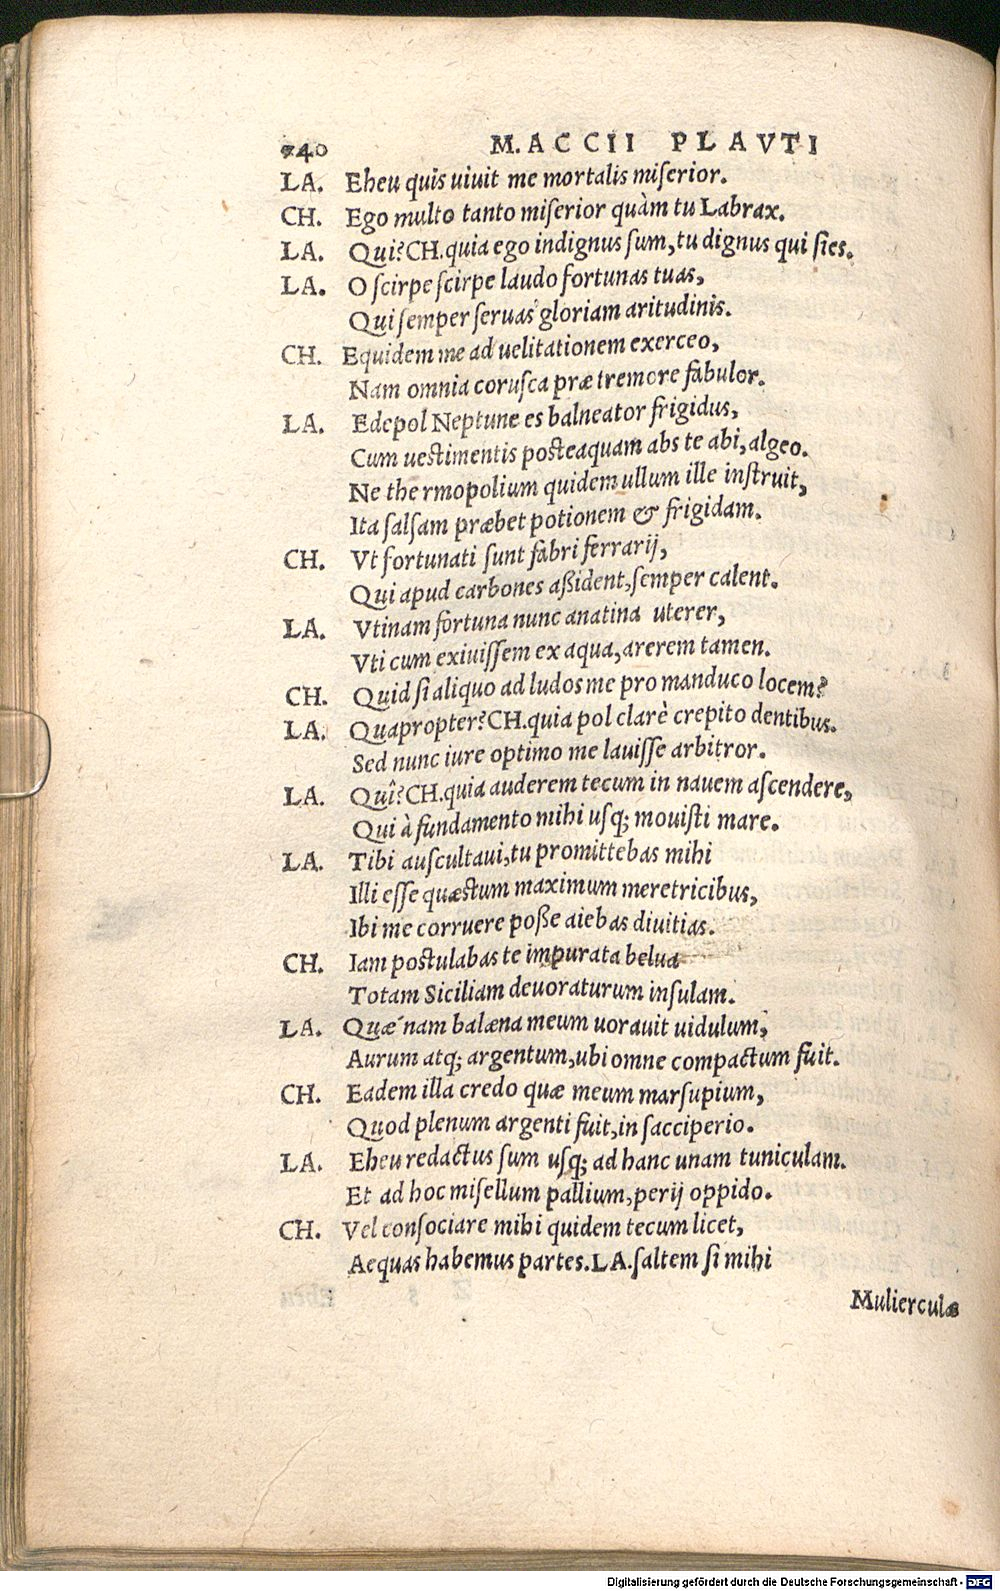 740 M. ACCII PLAVTI
LA. Eheu quis uiuit me mortalis miſerior.
CH. Ego multo tanto miſerior quàm tu Labrax.
LA. Qui? CH. quia ego indignus ſum, tu dignus qui ſies.
LA. O ſcirpe ſcirpe laudo fortunas tuas,
Qui ſemper ſeruas gloriam aritudinis.
CH. Equidem me ad uelitationem exerceo,
Nam omnia coruſca præ tremore fabulor.
LA. Edepol Neptune es balneator frigidus,
Cum ueſtimentis poſteaquam abs te abi, algeo.
Ne thermopolium quidem ullum ille inſtruit,
Ita ſalſam præbet potionem & frigidam.
CH. Vt fortunati ſunt fabri ferrarij,
Qui apud carbones aßident, ſemper calent.
LA. Vtinam fortuna nunc anatina uterer,
Vti cum exiuiſſem ex aqua, arerem tamen.
CH. Quid ſi aliquo ad ludos me pro manduco locem?
LA. Quapropter? CH. quia pol clarè crepito dentibus.
Sed nunc iure optimo me lauiſſe arbitror.
LA. Quî? CH. quia auderem tecum in nauem aſcendere,
Qui à fundamento mihi uſq; mouiſti mare.
LA. Tibi auſcultaui, tu promittebas mihi
Illi eſſe quæſtum maximum meretricibus,
Ibi me corruere poße aiebas diuitias.
CH. Iam poſtulabas te impurata belua
Totam Siciliam deuoraturum inſulam.
LA. Quæ nam balæna meum uorauit uidulum,
Aurum atq; argentum, ubi omne compactum fuit.
CH. Eadem illa credo quæ meum marſupium,
Quod plenum argenti fuit, in ſacciperio.
LA. Eheu redactus ſum uſq; ad hanc unam tuniculam.
Et ad hoc miſellum pallium, perij oppido.
CH. Vel conſociare mihi quidem tecum licet,
Aequas habemus partes. LA. ſaltem ſi mihi
Mulierculæ
Digitalisierung gefördert durch die Deutsche Forschungsgemeinschaft - DFG